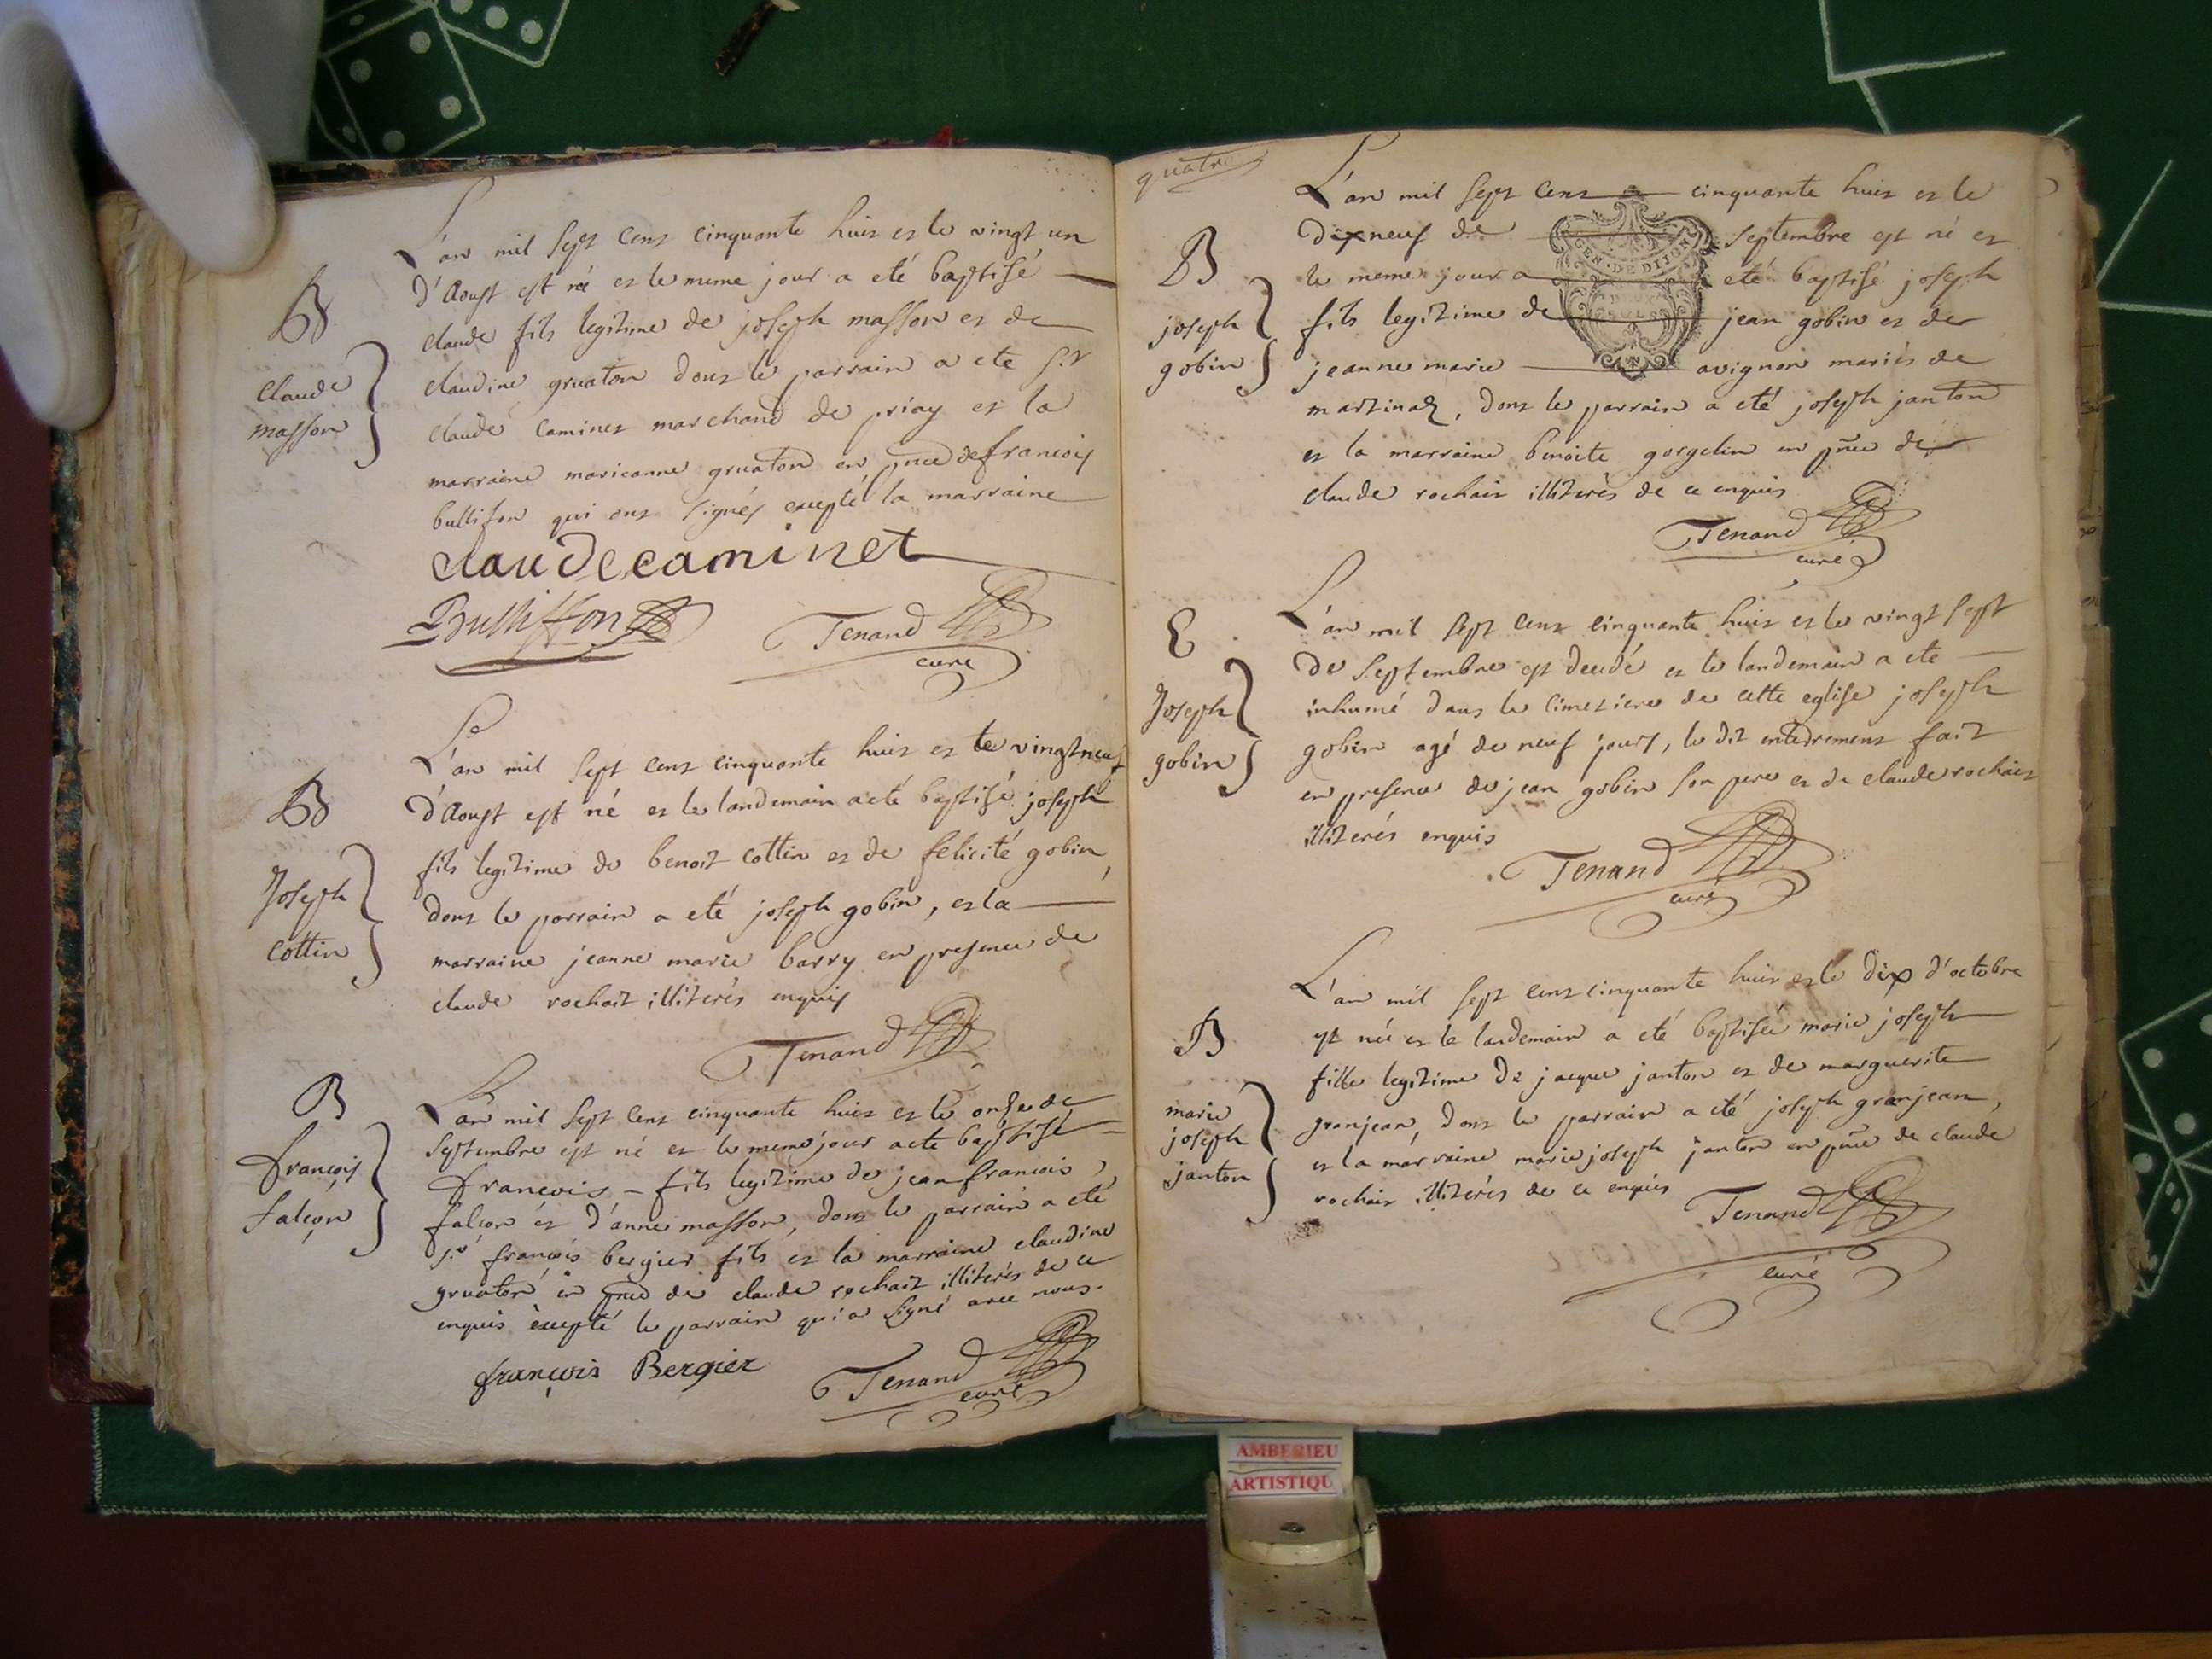 L'an mil sept cent cinquante huit et le vingt un
B
d'Aoust est né et le meme jour a eté baptisé
claude fils legitime de joseph masson et de
claude
masson
claudine gruaton dont le parrain a ete s.r
claude caminet marchand de priay et la
marraine marieanne gruaton en pnce de francois
bullifon qui ont signés excepté la marraine
claude caminet
Bulliffon
Tenand
curé
L'an mil sept cent cinquante huit et le vingt neuf
B
d'Aoust est né et le landemain a eté baptisé joseph
Joseph
cottin
fils legitime de benoit cottin et de felicité gobin,
dont le parrain a eté joseph gobin, et la
marraine jeanne marie barry en presence de
claude rochait illiterés enquis
Tenand
B
L'an mil sept cent cinquante huit et le onse de
septembre est né et le meme jour a ete baptisé
françois
falcon
francois fils legitime de jean francois
falcon et d'anne masson, dont le parrain a eté
s.r françois bergier fils et la marraine claudine
gruaton en pnce de claude rochait illiterés de ce
enquis excepté le parrain qui a signé avec nous.
françois Bergier
Tenand
curé
quatr
L'an mil sept cent cinquante huit et le
B
dixneuf de septembre est né et
le meme jour a eté baptisé joseph
GEN · DE DIJON
joseph
gobin
fils legitime de jean gobin et de
jeanne marie avignon mariés de
martinaz, dont le parrain a eté joseph janton
et la marraine benoite gorgelin en pnce de
claude rochait illiterés de ce enquis
Tenand
curé
L'an mil sept cent cinquante huit et le vingt sept
E
de septembre est decedé et le landemain a ete
Joseph
gobin
inhumé dans le cimetiere de cette eglise joseph
gobin agé de neuf jours, le dit enterrement fait
en presence de jean gobin son pere et de claude rochait
illiterés enquis
Tenand
curé
L'an mil sept cent cinquante huit et le dix d'octobre
B
est née et le landemain a eté baptisée marie joseph
marie
joseph
janton
fille legitime de jacque janton et de marguerite
granjean, dont le parrain a eté joseph granjean,
et la marraine marie joseph janton en pnce de claude
rochait illiterés de ce enquis
Tenand
curé
AMBERIEU
ARTISTIQU